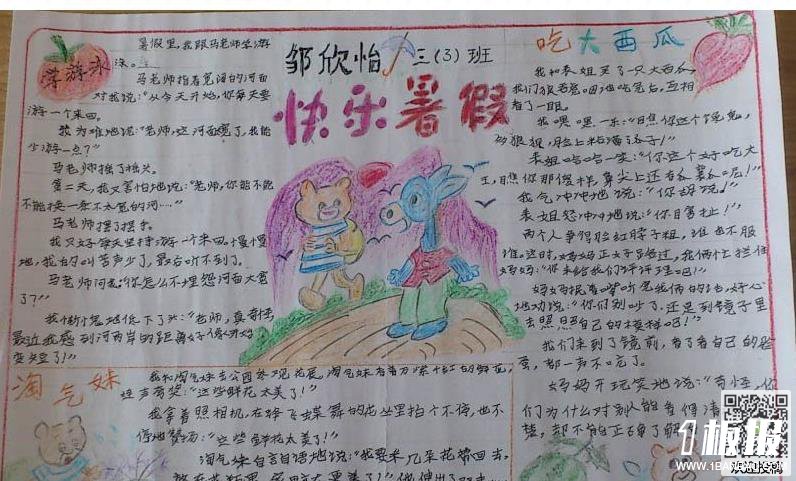 邹欣怡 三(3)班
快乐暑假
学游泳
暑假里,我跟马老师学游
泳。
马老师指着宽阔的河面
对我说:“从今天开始,你每天要
游一个来回。
我为难地说:“老师,这河面宽了,我能
少游一点?”
马老师摇了摇头。
第二天,我又害怕地说:“老师,你能不能
不能换一条不太宽的河…”
马老师摆了摆手。
我只好每天坚持游一个来回,慢慢
地,我的叫苦声少了,最后听不到了。
马老师问我:“你怎么不埋怨河面太宽
了?”
我低下了头:“老师,真奇怪
最近我感到河两岸的距离好像开始
变短了!”
吃大西瓜
我和表姐买了一只大西瓜
我们狼吞虎咽地吃完后,互相
看了一眼。
我嘿嘿一乐:“目焦你这个馋鬼,
动狼狈,脸上粘满了子!”
表姐哈哈一笑:“你这个好吃大
王,目焦你那傻样,鼻尖上还有
我气冲冲地说:“你胡说。”
表姐怒冲冲地说:“你目害扯!”
两个人争得脸红脖子粗,谁也不服
谁。这时,妈妈正好路过,我俩忙拦住
妈妈:“你来给我们评评理吧!”
地劝说:“你们别吵了,还是到镜子里
去照照自己的模样吧!”
我们来到了镜前,看了看自己的脸
蛋,都一声不吭了。
妈妈开玩笑地说:“奇怪,你
们为什么对别人能看得清
楚,却不能正确了解
淘气妹
我和淘气妹去公园参观花展,淘气妹看着万紫千红的鲜花,
连声夸奖:“这些鲜花太美了!”
我拿着照相机,在蜂飞蝶舞的花丛里拍个不停,也不
停地赞扬:“这些鲜花太美了!”
淘气妹自言自语地说:“我要采几朵花带回去,
1板报
WWW.1BANBAO.COM
欢迎投稿